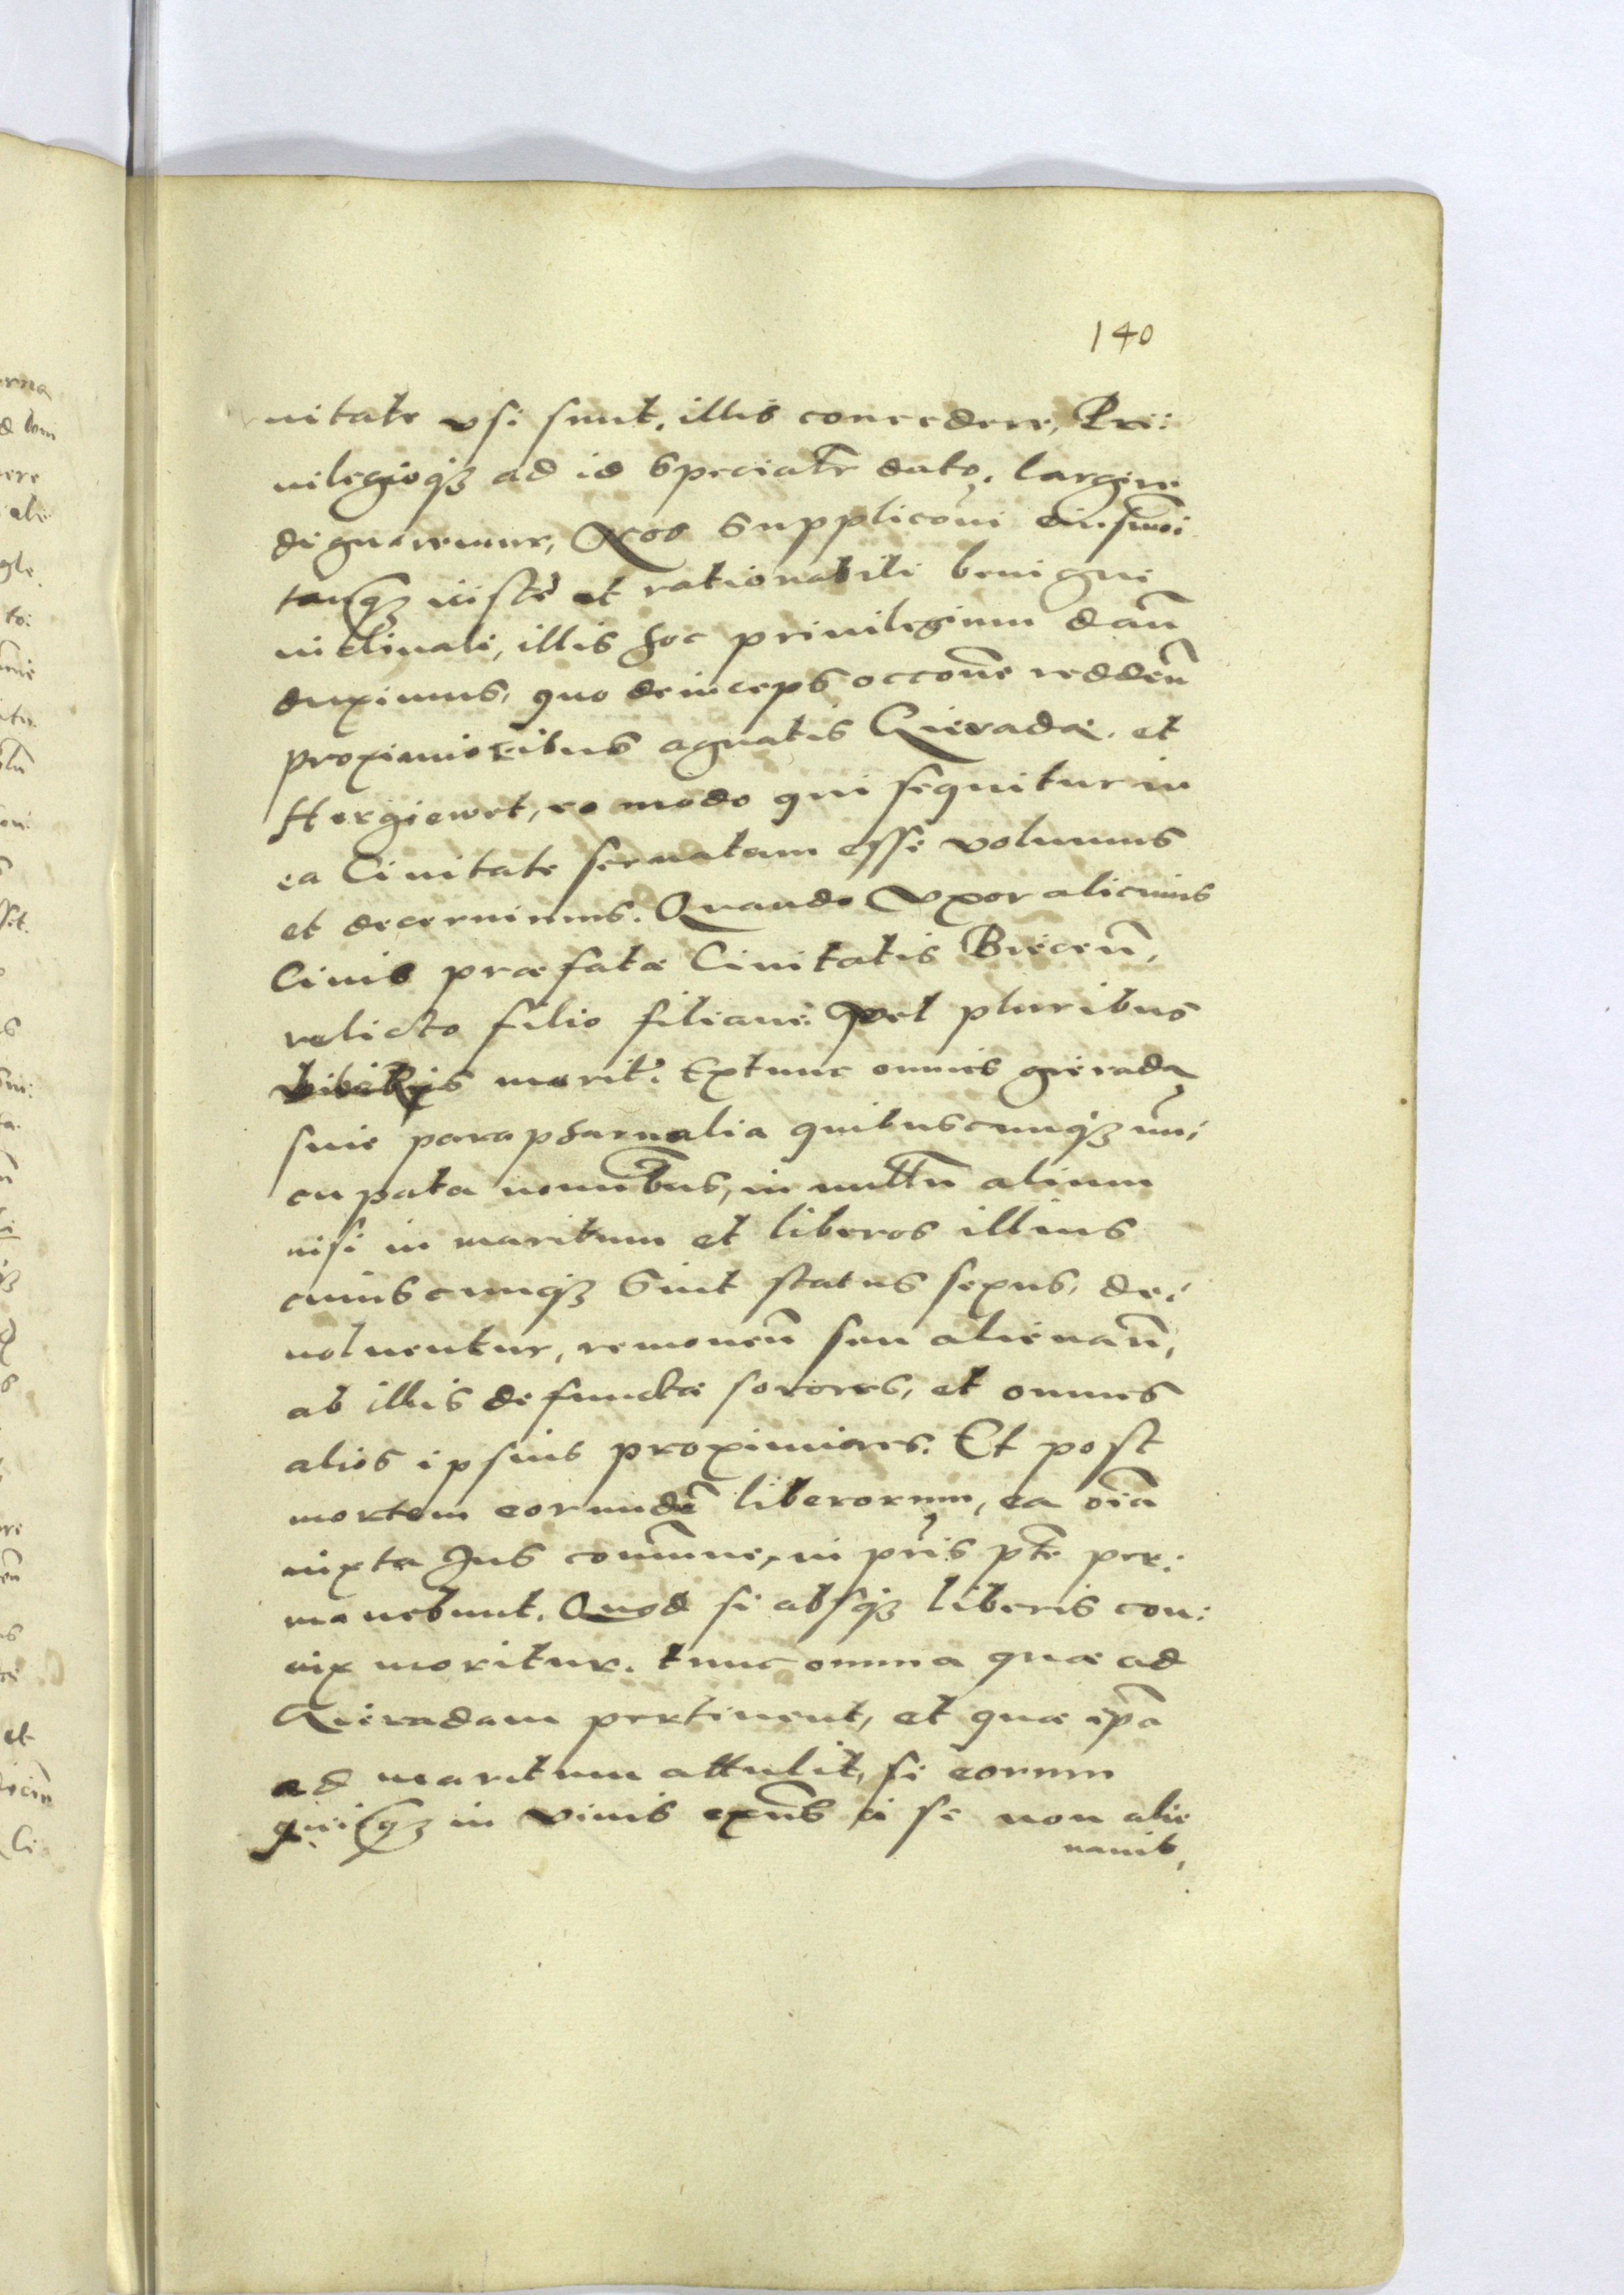 140
uitate vsi sunt, illis concedere, Pri:
uilegioq3 ad id specialr dato, largiri
dignaremur, Nos suppliconi eiusmoi
tanq3 iuste et rationabili benigne
inclinati, illis hoc priuilegium dan
duximus, quo deinceps occone redden
proximioribus agnatis Gieradæ, et
Hergiewet, eo modo qui sequitur in
ea Ciuitate seruatam esse volumus
et decernimus. Quando Vxor alicuius
Ciuis præfatæ Ciuitatis Bréceñ,
relicto filio filiaue vel pluribus
liberis morit. Extunc omnis gierada
siue parapharnalia quibuscunq3 nun:
cupata nominibus, in nullm alium
nisi in maritum et liberos illius
cuiuscunq3 sint status sexus, de:
uoluentur, remoueñ seu alienañ,
ab illis defunctæ sorores, et omnes
alios ipsius proximiores. Et post
mortem eorundē liberorum, ea oīa
iuxta Jus commune, in pris pte per:
manebunt. Quod si absq3 liberis con:
iux moritur, tunc omnia quæ ad
Gieradam pertinent, et quæ ipa
ad maritum attulit, si eorum
quicq3 in viuis exns à se non alie
nauit,